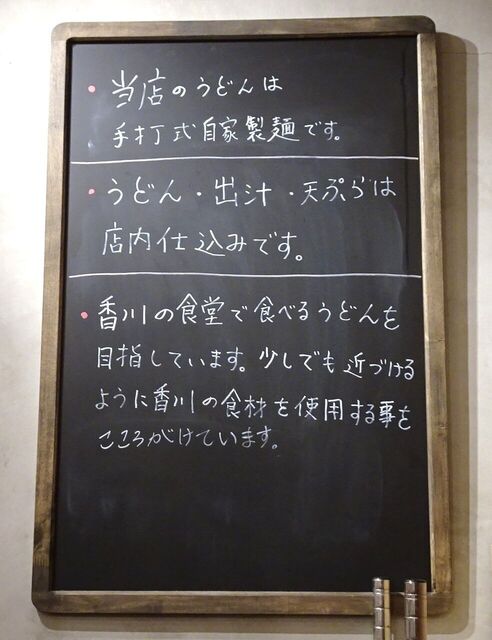 ・当店のうどんは
手打式自家製麺です。
・うどん・出汁・天ぷらは
店内仕込みです。
・香川の食堂で食べるうどんを
目指しています。少しでも近づける
ように香川の食材を使用する事を
こころがけています。